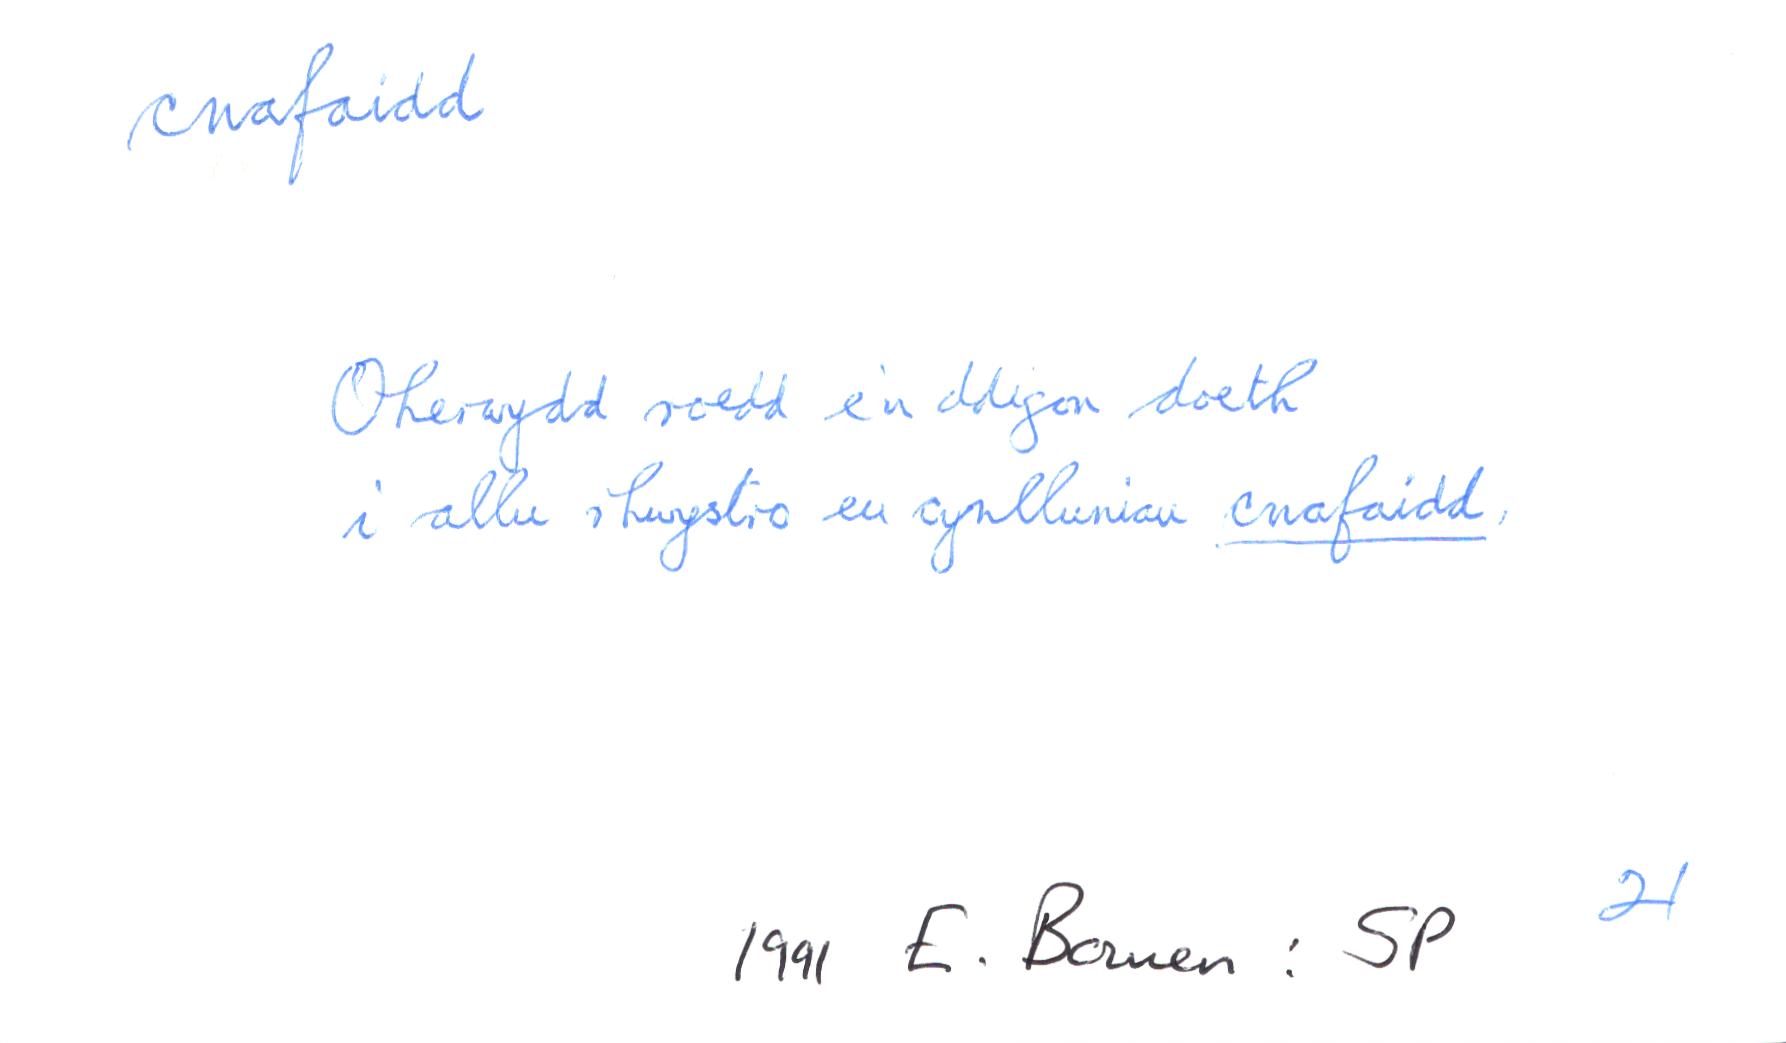 cnafaidd
Oherwydd roedd e'n ddigon doeth
i allu rhwystro eu cynlluniau cnafaidd,
1991 E. Bowen : SP 21